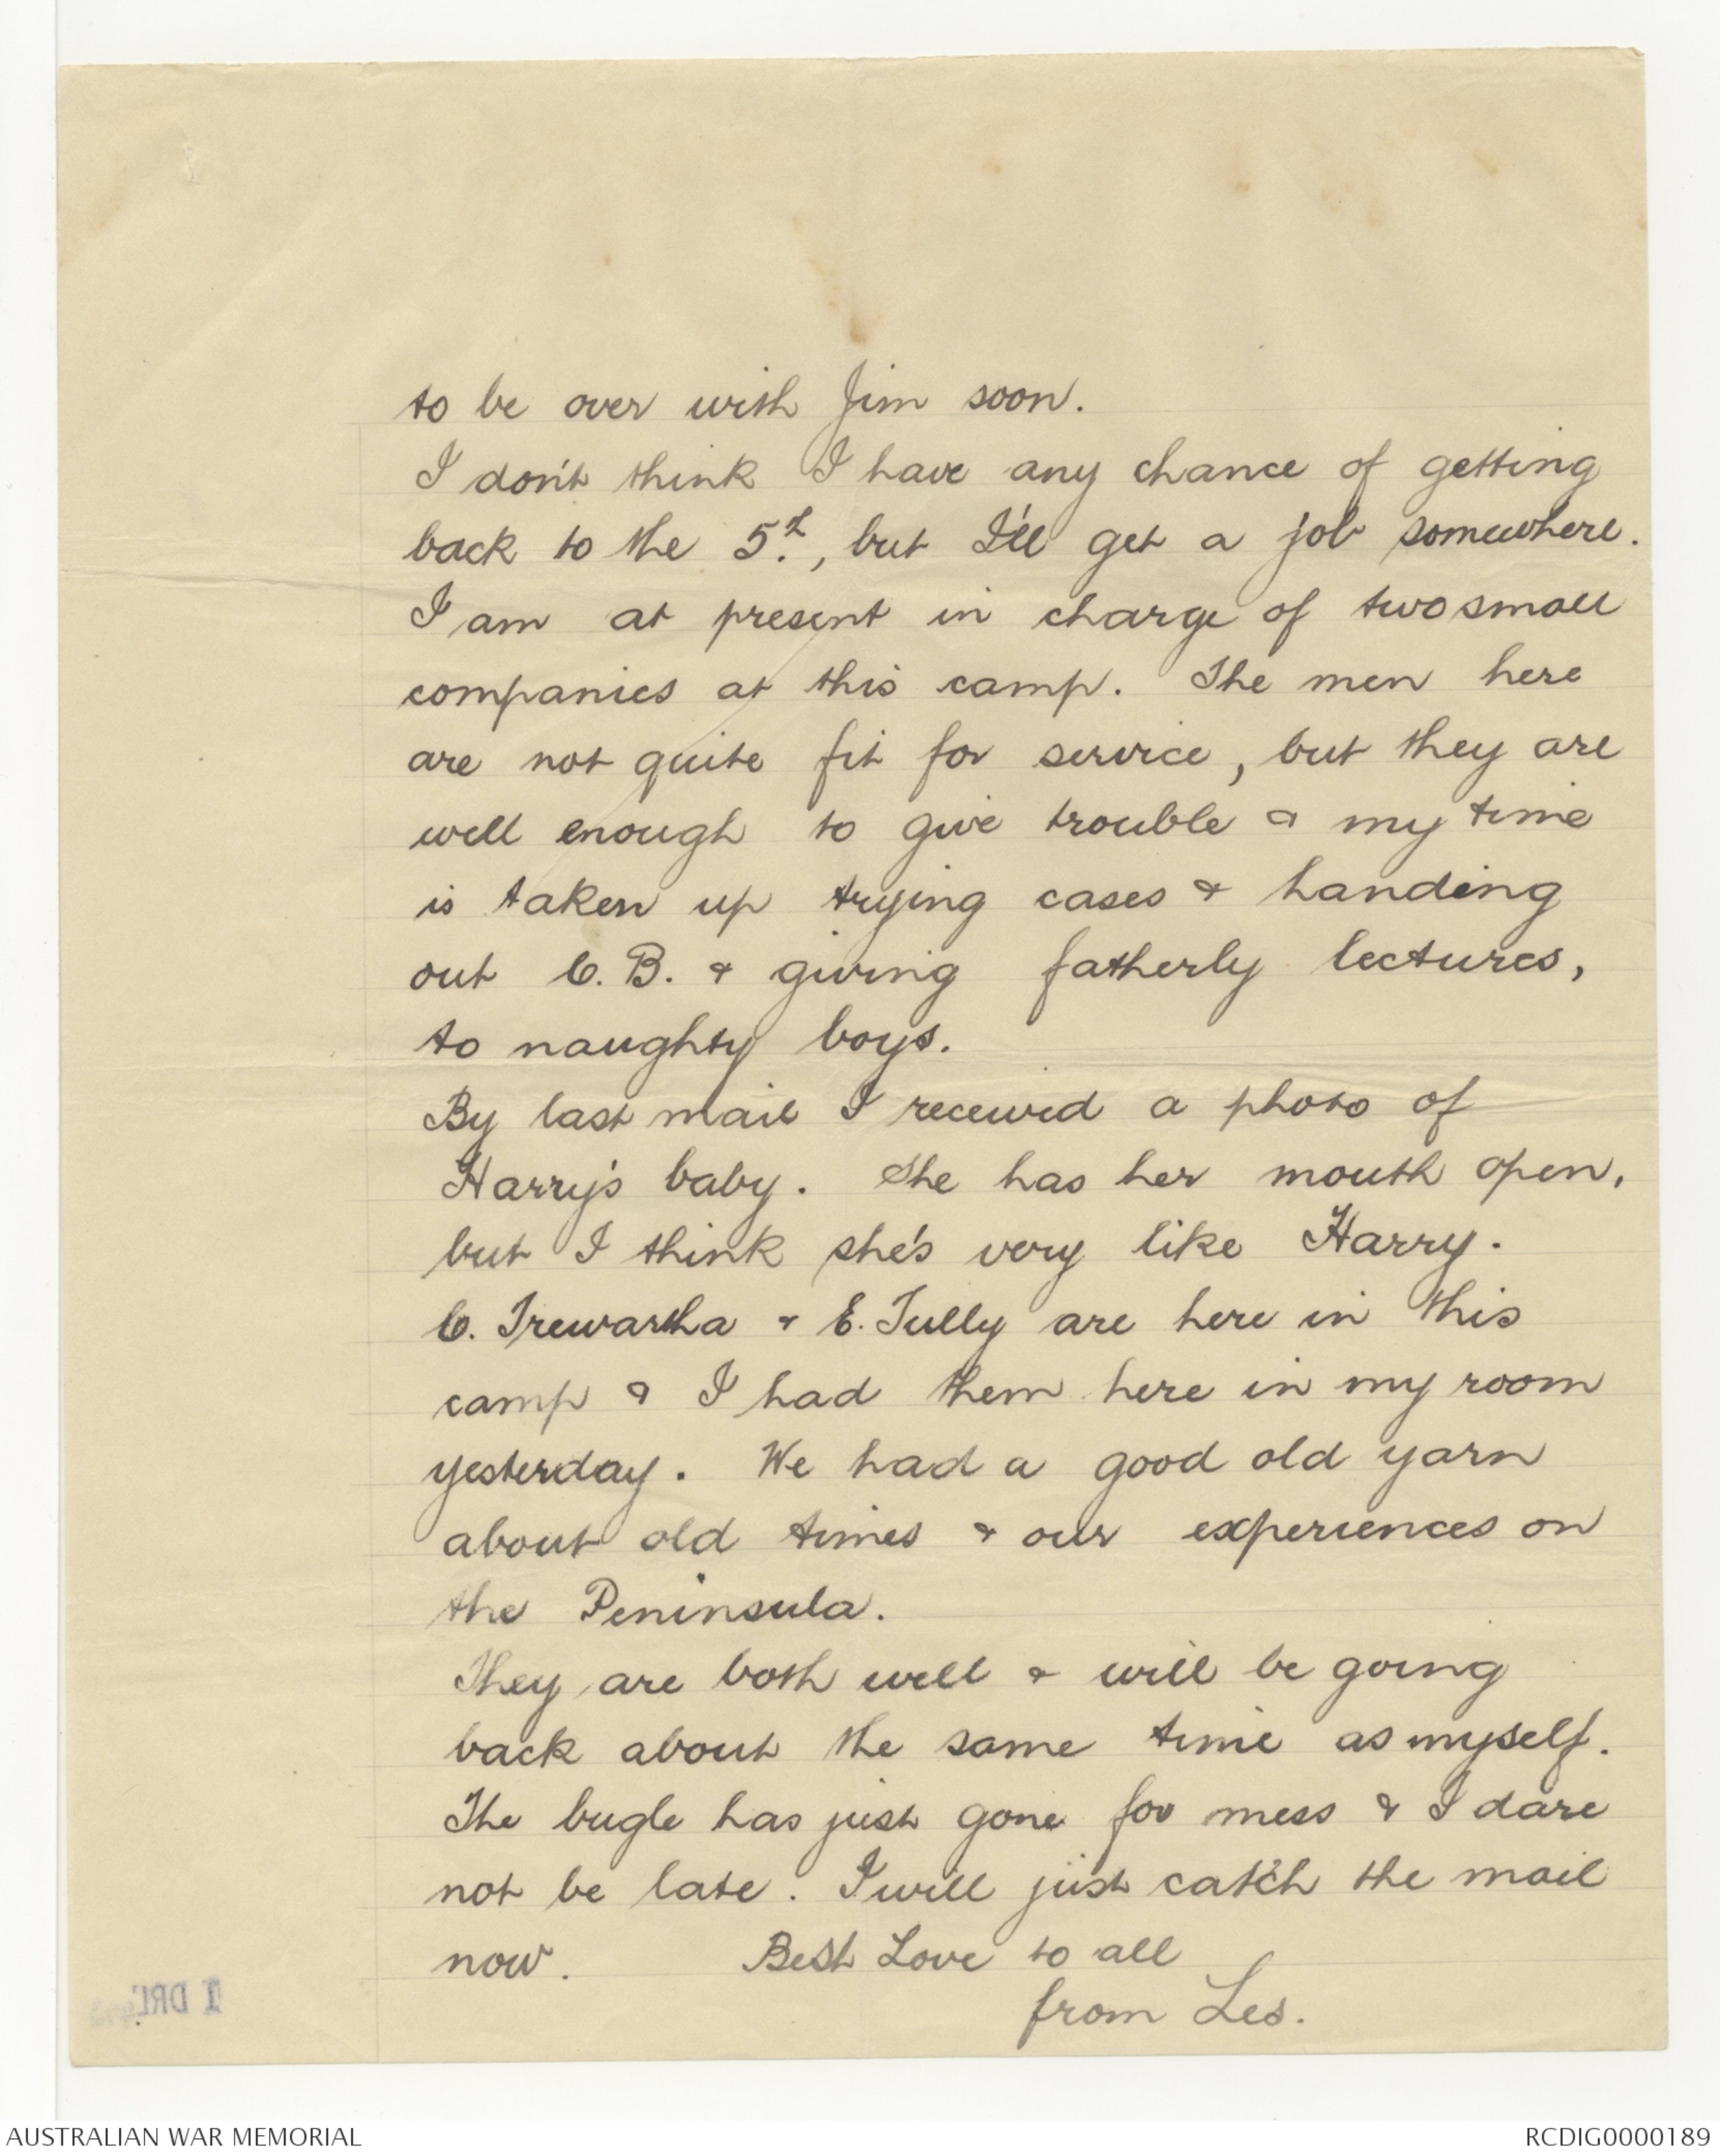 to be over with Jim soon.
I don't think I have any chance of getting
back to the 5th, but I'll get a job somewhere.
I am at present in charge of two small
companies at this camp. The men here
are not quite fit for service, but they are
well enough to give trouble & my time
is taken up trying cases & handing
out C.B. & giving fatherly lectures,
to naughty boys.
By last mail I received a photo of
Harry's baby. She has her mouth open,
but I think she's very like Harry.
C. Trewartha & E. Tully are here in this
camp & I had them here in my room
yesterday. We had a good old yarn
about old times & our experiences on
the Peninsula.
They are both well & will be going
back about the same time as myself.
The bugle has just gone for mess & I dare
not be late. I will just catch the mail
now. Best Love to all
from Les.
1 DRL
AUSTRALIAN WAR MEMORIAL
RCDIG0000189